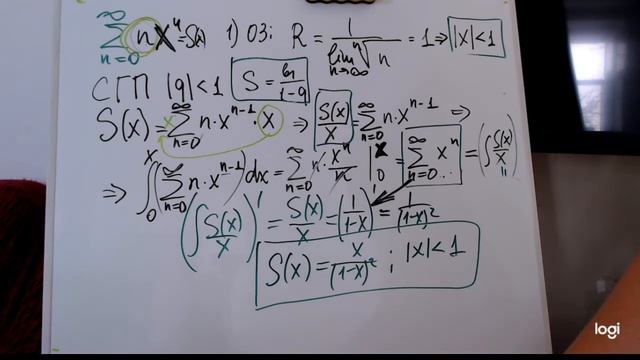 ∞∑n=0 n x^n = S(x) 1) ОЗ: R = 1/(lim n→∞ ⁿ√n) = 1 ⇒ |x|<1
СГП |q|<1 S = b₁/(1-q)
S(x) = x ∞∑n=0 n·x^(n-1)·x ⇒ S(x)/x = ∞∑n=0 n·x^(n-1) ⇒
⇒ ∫₀ˣ (∞∑n=0 n·x^(n-1))dx = ∞∑n=0 n·xⁿ/n |₀ˣ = ∞∑n=0... xⁿ = (∫ S(x)/x
(∫ S(x)/x)' = S(x)/x = (1/(1-x))' = 1/(1-x)²
S(x) = x/(1-x)² ; |x|<1
logi